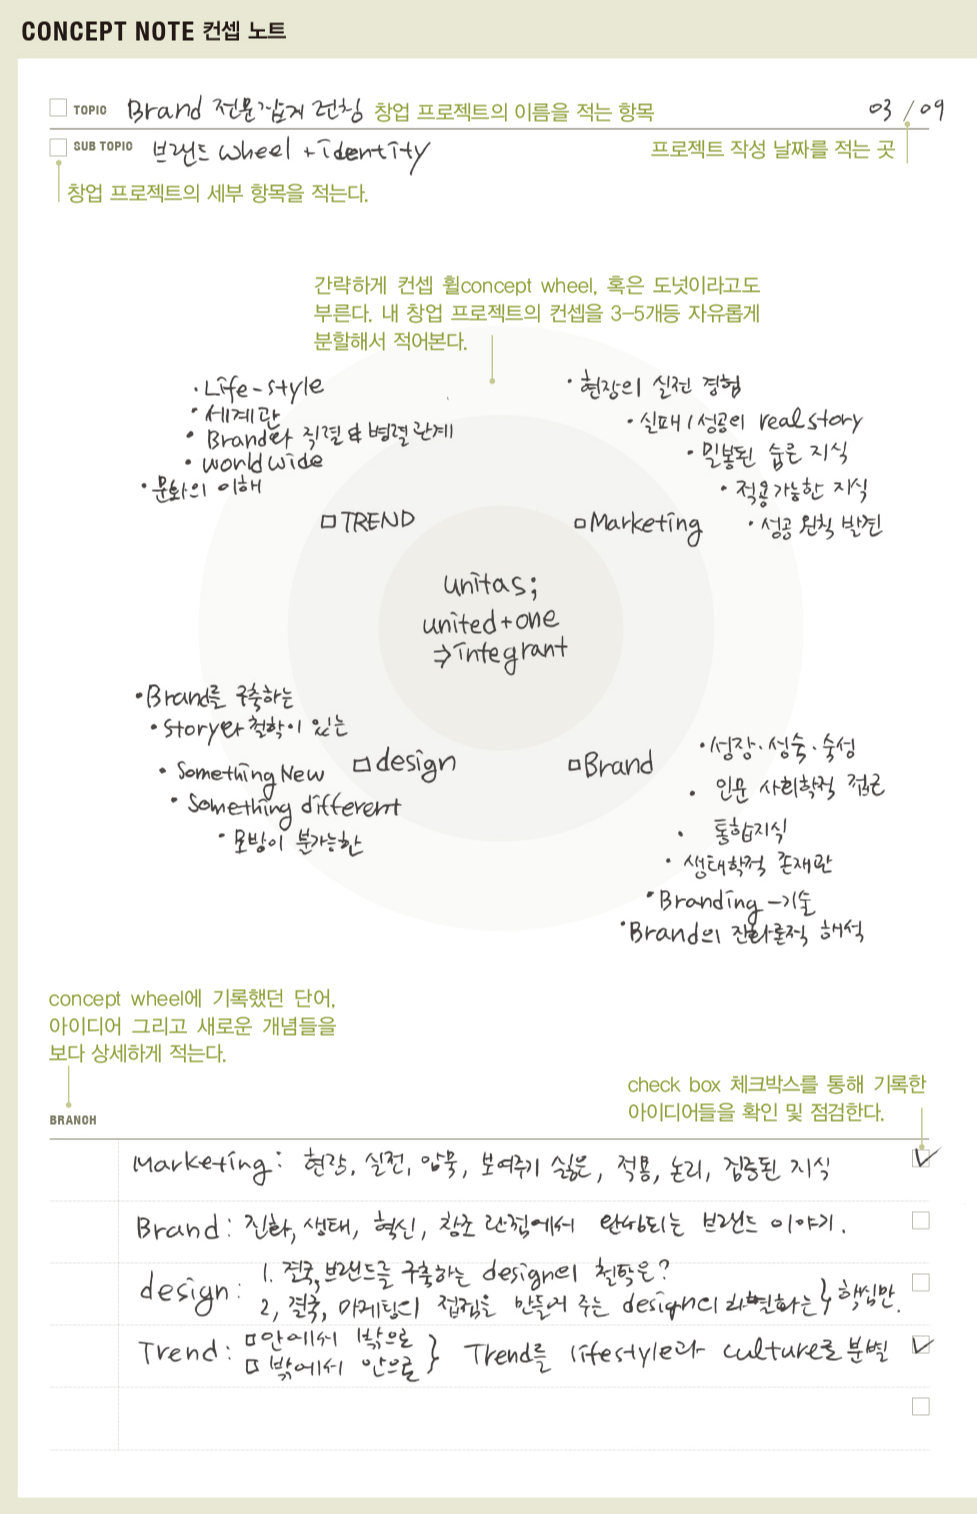 CONCEPT NOTE 컨셉 노트
TOPIC Brand 전문잡지 런칭 창업 프로젝트의 이름을 적는 항목 03 / 09
SUB TOPIC 브랜드 wheel + identity 프로젝트 작성 날짜를 적는 곳
창업 프로젝트의 세부 항목을 적는다.
간략하게 컨셉 휠concept wheel, 혹은 도넛이라고도
부른다. 내 창업 프로젝트의 컨셉을 3-5개등 자유롭게
분할해서 적어본다.
· Life-style
· 세계관
· Brand와 직렬 & 병렬 관계
· worldwide
· 문화의 이해
□ TREND
· 현장의 실전 경험
· 실패/성공의 real story
· 밀봉된 숨은 지식
· 적용가능한 지식
· 성공 원칙 발견
□ Marketing
unitas;
united+one
⇒ integrant
· Brand를 구축하는
· Story와 철학이 있는
· Something New
· Something different
· 모방이 불가능한
□ design
□ Brand
· 성장·성숙·숙성
· 인문 사회학적 접근
· 통합지식
· 생태학적 존재관
· Branding - 기술
· Brand의 진화론적 해석
concept wheel에 기록했던 단어,
아이디어 그리고 새로운 개념들을
보다 상세하게 적는다.
check box 체크박스를 통해 기록한
아이디어들을 확인 및 점검한다.
BRANCH
Marketing: 현장, 실전, 암묵, 보여주기 싫은, 적용, 논리, 검증된 지식
Brand: 진화, 생태, 혁신, 창조 관점에서 완성되는 브랜드 이야기.
design: 1. 결국, 브랜드를 구축하는 design의 철학은?
2, 결국, 마케팅의 접점을 만들어 주는 design의 차별화는 } 핵심만.
Trend: □ 안에서 밖으로
□ 밖에서 안으로 } Trend를 lifestyle과 culture로 분별